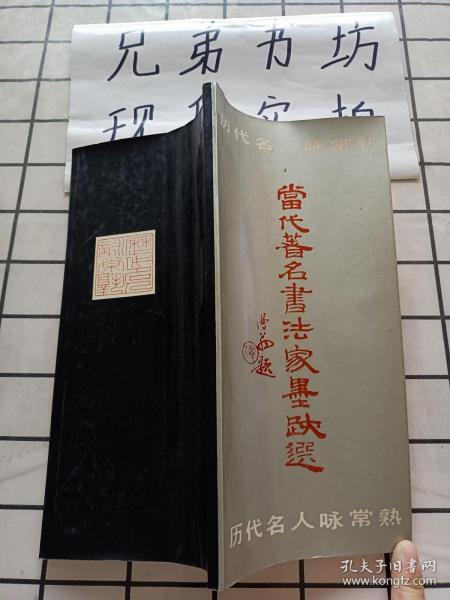 兄弟书坊
现货实拍
历代名人咏常熟
當代著名書法家墨跡選
题
历代名人咏常熟
孔夫子旧书网
www.kongfz.com